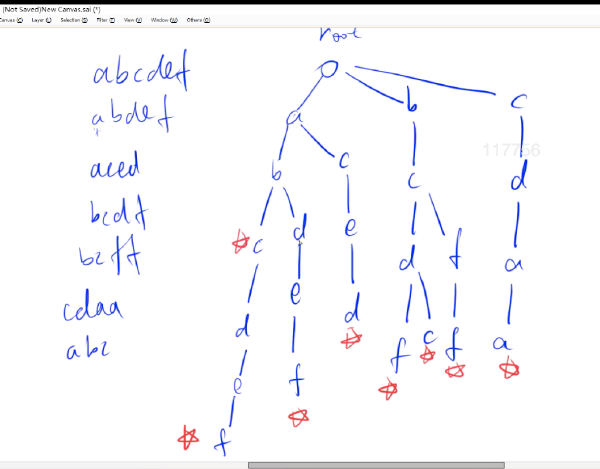 (Not Saved)New Canvas.sai (*)
Canvas (C) Layer (L) Selection (S) Filter (T) View (V) Window (W) Others (O)
root
abcdef
abdef
aced
bcdf
bcff
cdaa
abc
a b c
b c c d
117756
c d e d f a
d e d f c f a
e f
f